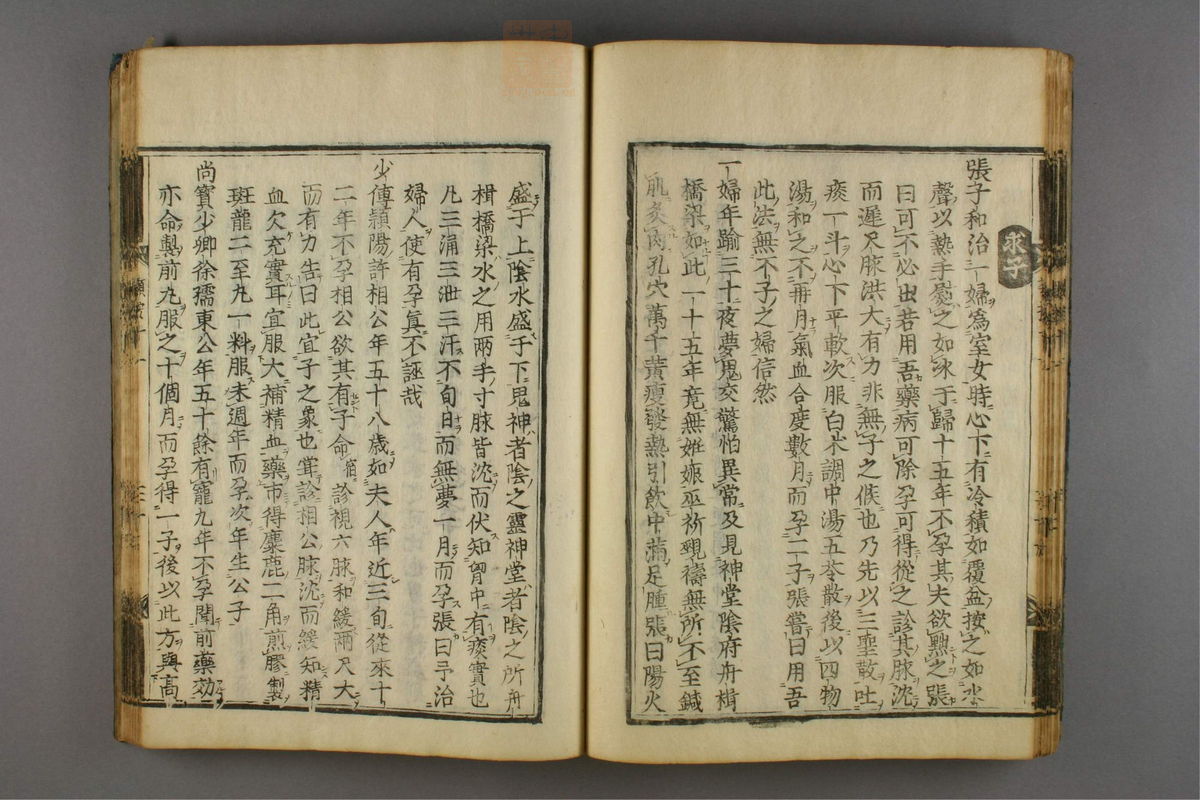 求子
張子和治一婦爲室女時心下有冷積如覆盆按之如水
聲以熱手熨之如冰于歸十五年不孕其夫欲黜之張
曰可不必出若用吾藥病可除孕可得從之診其脉沈
而遲尺脉洪大有力非無子之候也乃先以三聖散吐
痰一斗心下平軟次服白朮調中湯五苓散後以四物
湯和之不再月氣血合度數月而孕二子張嘗曰用吾
此法無不子之婦信然
一婦年踰三十夜夢鬼交驚怕異常及見神堂陰府舟楫
橋梁如此一十五年竟無姙娠巫祈覡禱無所不至鍼
肌灸肉孔穴萬千黃瘦發熱引飲中滿足腫張曰陽火
盛于上陰水盛于下鬼神者陰之靈神堂者陰之所舟
楫橋梁水之用兩手寸脉皆沈而伏知胷中有痰實也
凡三涌三泄三汗不旬日而無夢一月而孕張曰予治
婦人使有孕眞不誣哉
少傅穎陽許相公年五十八歲如夫人年近三旬從來十
二年不孕相公欲其有子命宿診視六脉和緩兩尺大
而有力告曰此宜子之象也嘗診相公脉沈而緩知精
血欠充實耳宜服大補精血藥市得麋鹿二角煎膠製
斑龍二至丸一料服未週年而孕次年生公子
尚寶少卿徐孺東公年五十餘有寵九年不孕聞前藥効
亦命製前丸服之十個月而孕得一子後以此方與高